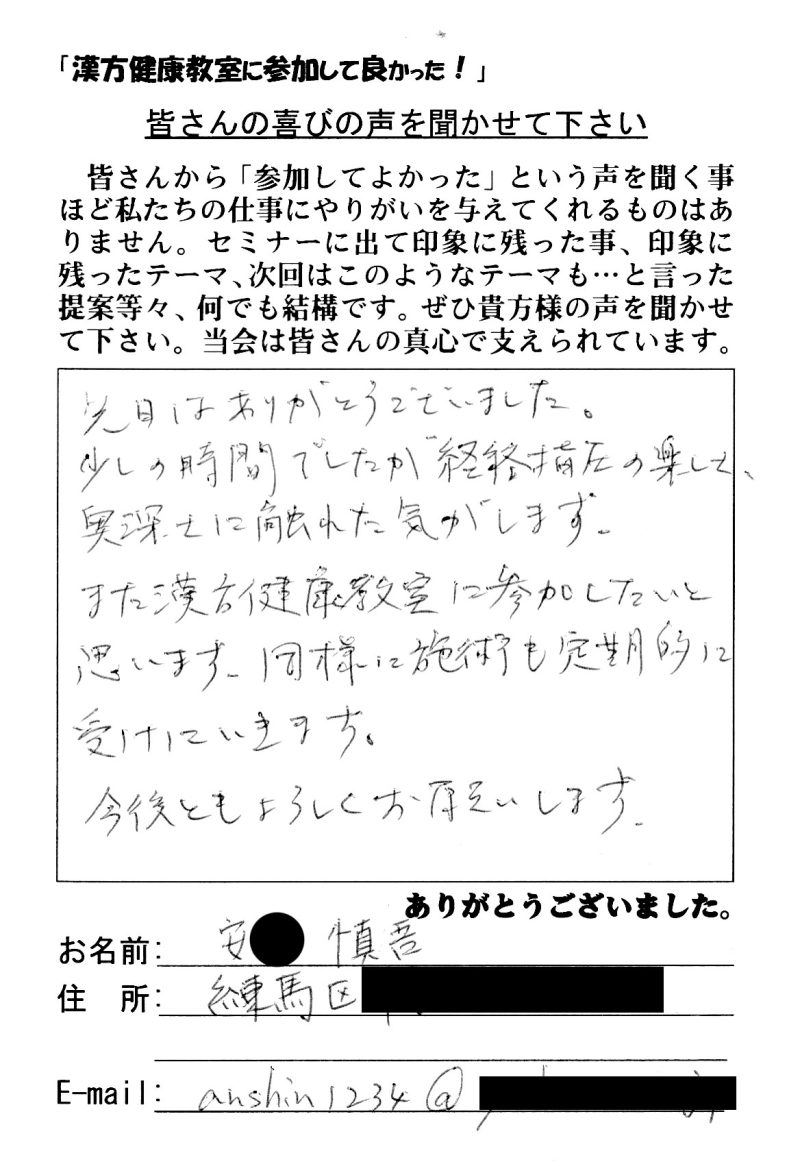 「漢方健康教室に参加して良かった！」
皆さんの喜びの声を聞かせて下さい
皆さんから「参加してよかった」という声を聞く事
ほど私たちの仕事にやりがいを与えてくれるものはあ
りません。セミナーに出て印象に残った事、印象に
残ったテーマ、次回はこのようなテーマも…と言った
提案等々、何でも結構です。ぜひ貴方様の声を聞かせ
て下さい。当会は皆さんの真心で支えられています。
先日はありがとうございました。
少しの時間でしたが経絡指圧の楽しさ、
奥深さに触れた気がします。
また漢方健康教室に参加したいと
思います。同様に施術も定期的に
受けにいきます。
今後ともよろしくお願いします。
ありがとうございました。
お名前: 安 慎吾
住　所: 練馬区
E-mail: anshin1234@